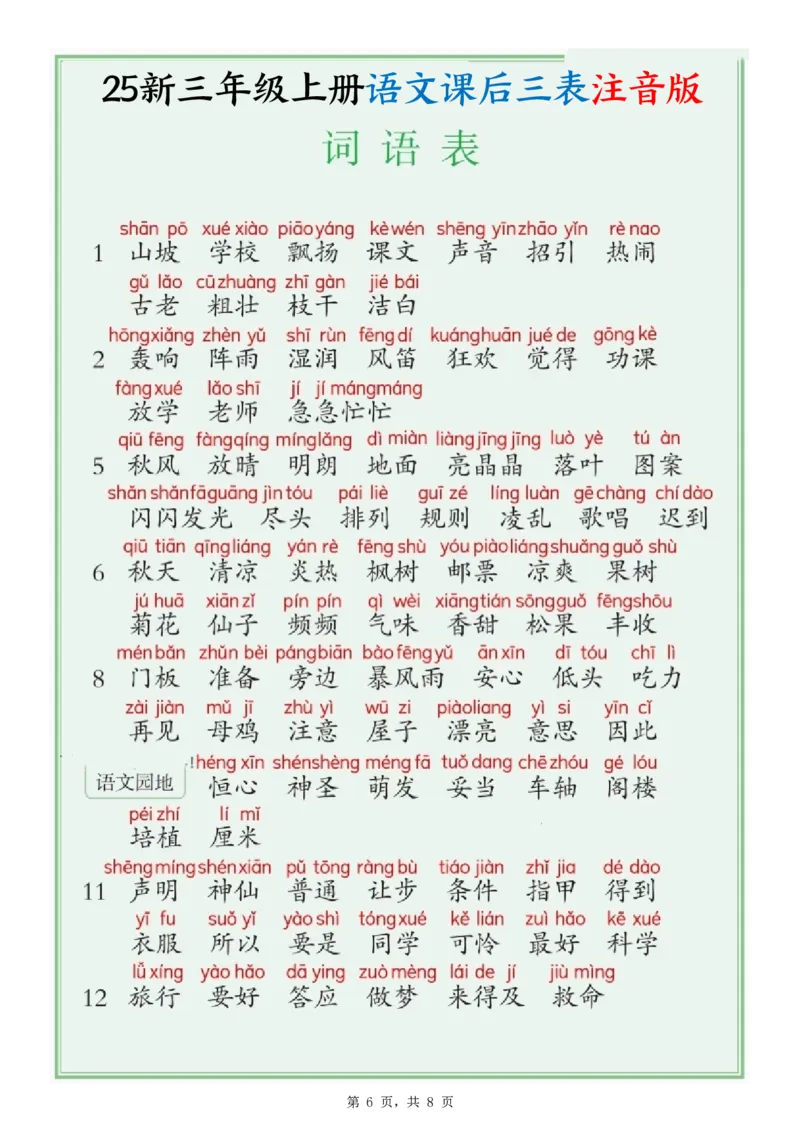 25新三年级上册语文课后三表注音版
词 语 表
shān pō xué xiào piāo yáng kè wén shēng yīn zhāo yǐn rè nao
1 山坡 学校 飘扬 课文 声音 招引 热闹
gǔ lǎo cū zhuàng zhī gàn jié bái
古老 粗壮 枝干 洁白
hōng xiǎng zhèn yǔ shī rùn fēng dí kuáng huān jué de gōng kè
2 轰响 阵雨 湿润 风笛 狂欢 觉得 功课
fàng xué lǎo shī jí jí máng máng
放学 老师 急急忙忙
qiū fēng fàng qíng míng lǎng dì miàn liàng jīng jīng luò yè tú àn
5 秋风 放晴 明朗 地面 亮晶晶 落叶 图案
shǎn shǎn fā guāng jìn tóu pái liè guī zé líng luàn gē chàng chí dào
闪闪发光 尽头 排列 规则 凌乱 歌唱 迟到
qiū tiān qīng liáng yán rè fēng shù yóu piào liáng shuǎng guǒ shù
6 秋天 清凉 炎热 枫树 邮票 凉爽 果树
jú huā xiān zǐ pín pín qì wèi xiāng tián sōng guǒ fēng shōu
菊花 仙子 频频 气味 香甜 松果 丰收
mén bǎn zhǔn bèi páng biān bào fēng yǔ ān xīn dī tóu chī lì
8 门板 准备 旁边 暴风雨 安心 低头 吃力
zài jiàn mǔ jī zhù yì wū zi piào liang yì si yīn cǐ
再见 母鸡 注意 屋子 漂亮 意思 因此
héng xīn shén shèng méng fā tuǒ dang chē zhóu gé lóu
语文园地 恒心 神圣 萌发 妥当 车轴 阁楼
péi zhí lí mǐ
培植 厘米
shēng míng shén xiān pǔ tōng ràng bù tiáo jiàn zhǐ jia dé dào
11 声明 神仙 普通 让步 条件 指甲 得到
yī fu suǒ yǐ yào shì tóng xué kě lián zuì hǎo kē xué
衣服 所以 要是 同学 可怜 最好 科学
lǚ xíng yào hǎo dā ying zuò mèng lái de jí jiù mìng
12 旅行 要好 答应 做梦 来得及 救命
第 6 页，共 8 页